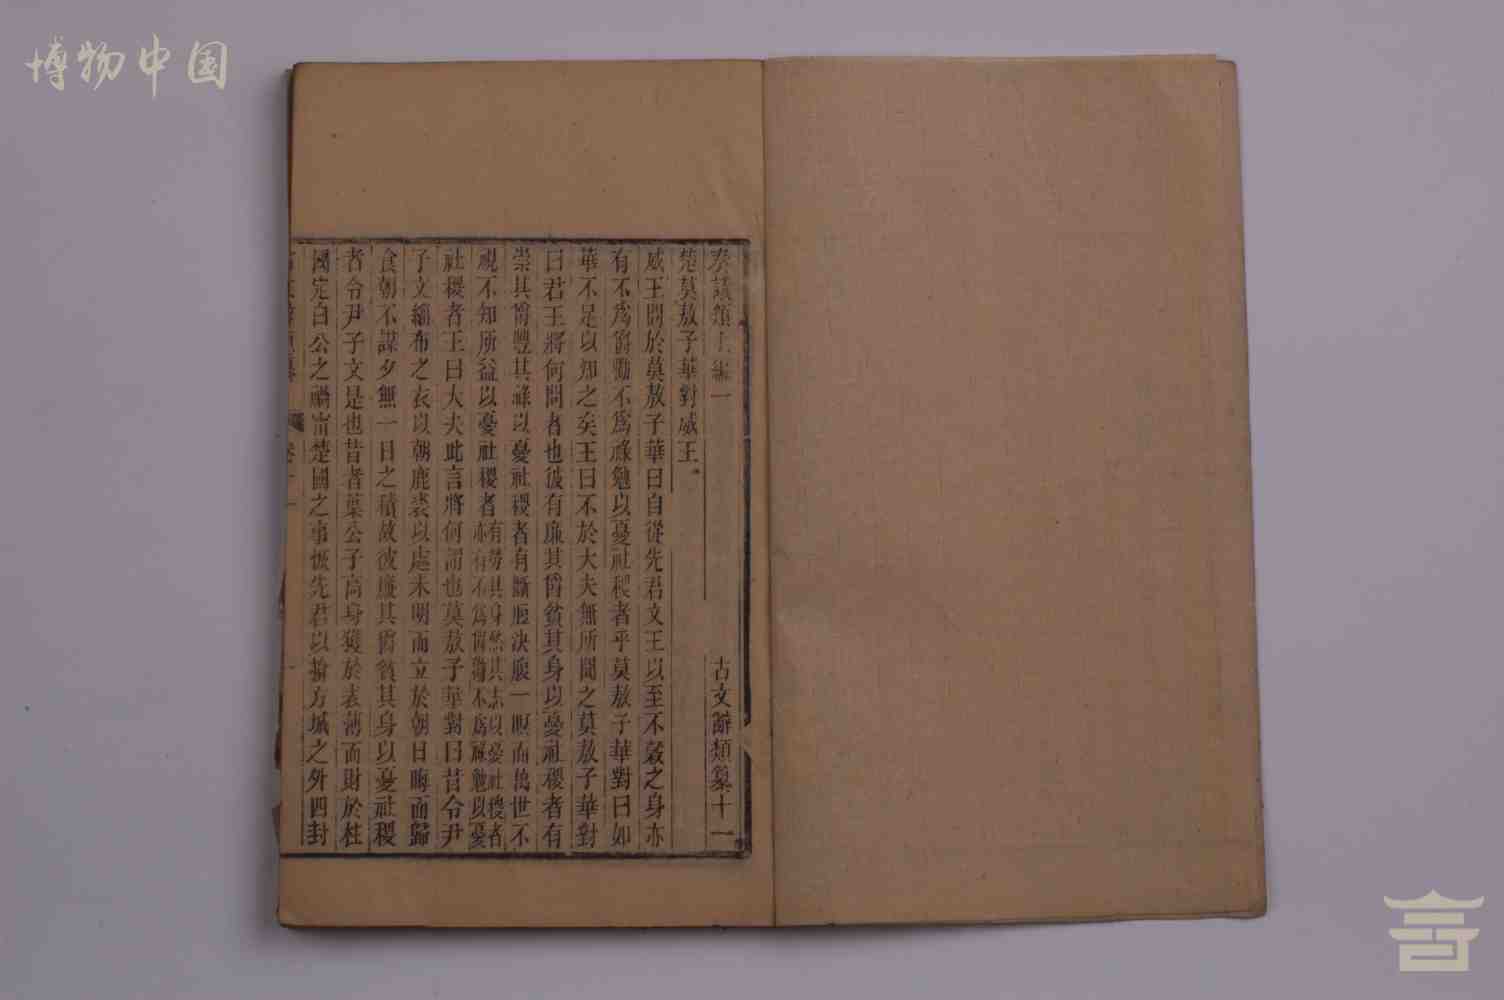 博物中国
奏議類上編一 古文辭類纂十一
楚莫敖子華對威王。
威王問於莫敖子華曰自從先君文王以至不穀之身亦
有不爲爵勸不爲祿勉以憂社稷者乎莫敖子華對曰如
華不足以知之矣王曰不於大夫無所聞之莫敖子華對
曰君王將何問者也彼有廉其爵貧其身以憂社稷者有
崇其爵豐其祿以憂社稷者有斷脰決腹一瞑而萬世不
視不知所益以憂社稷者
有勞其身愁其志以憂社稷者
亦有不爲爵勸不爲祿勉以憂
社稷者王曰大夫此言將何謂也莫敖子華對曰昔令尹
子文緇布之衣以朝鹿裘以處未明而立於朝日晦而歸
食朝不謀夕無一日之積故彼廉其爵貧其身以憂社稷
者令尹子文是也昔者葉公子高身獲於表薄而財於柱
國定白公之禍甯楚國之事恢先君以揜方城之外四封